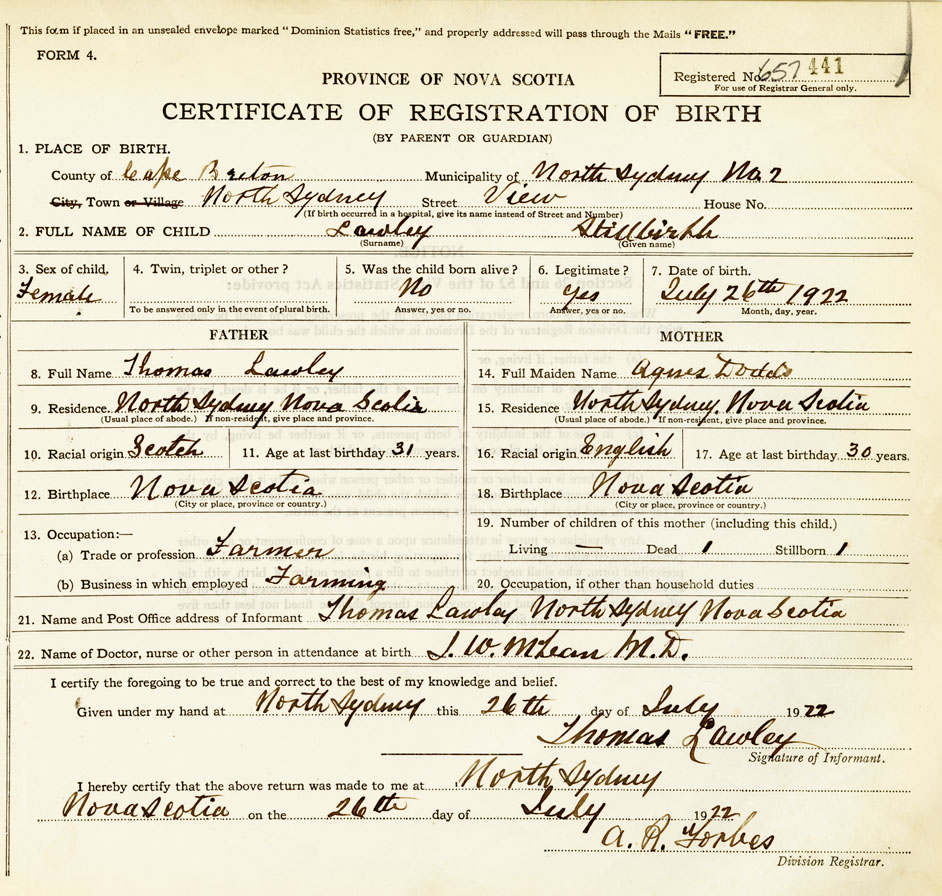 This form if placed in an unsealed envelope marked "Dominion Statistics free," and properly addressed will pass through the Mails "FREE."
FORM 4.
Registered No. 657 441
For use of Registrar General only.
PROVINCE OF NOVA SCOTIA
CERTIFICATE OF REGISTRATION OF BIRTH
(BY PARENT OR GUARDIAN)
1. PLACE OF BIRTH.
County of Cape Breton Municipality of North Sydney No. 2
City, Town or Village North Sydney Street View House No.
(If birth occurred in a hospital, give its name instead of Street and Number)
2. FULL NAME OF CHILD Lawley Stillbirth
(Surname) (Given name)
3. Sex of child. 4. Twin, triplet or other? 5. Was the child born alive? 6. Legitimate? 7. Date of birth.
Female No Yes July 26th 1922
To be answered only in the event of plural birth. Answer, yes or no. Answer, yes or no. Month, day, year.
FATHER MOTHER
8. Full Name Thomas Lawley 14. Full Maiden Name Agnes Dodds
9. Residence. North Sydney Nova Scotia 15. Residence North Sydney, Nova Scotia
(Usual place of abode.) If non-resident, give place and province. (Usual place of abode.) If non-resident, give place and province.
10. Racial origin Scotch 11. Age at last birthday 31 years. 16. Racial origin English 17. Age at last birthday 30 years.
12. Birthplace Nova Scotia 18. Birthplace Nova Scotia
(City or place, province or country.) (City or place, province or country.)
13. Occupation:— 19. Number of children of this mother (including this child.)
(a) Trade or profession Farmer Living — Dead 1 Stillborn 1
(b) Business in which employed Farming 20. Occupation, if other than household duties
21. Name and Post Office address of Informant Thomas Lawley North Sydney Nova Scotia
22. Name of Doctor, nurse or other person in attendance at birth J. W. McLean M.D.
I certify the foregoing to be true and correct to the best of my knowledge and belief.
Given under my hand at North Sydney this 26th day of July 1922
Thomas Lawley
Signature of Informant.
I hereby certify that the above return was made to me at North Sydney
Nova Scotia on the 26th day of July 1922
A. R. Forbes
Division Registrar.